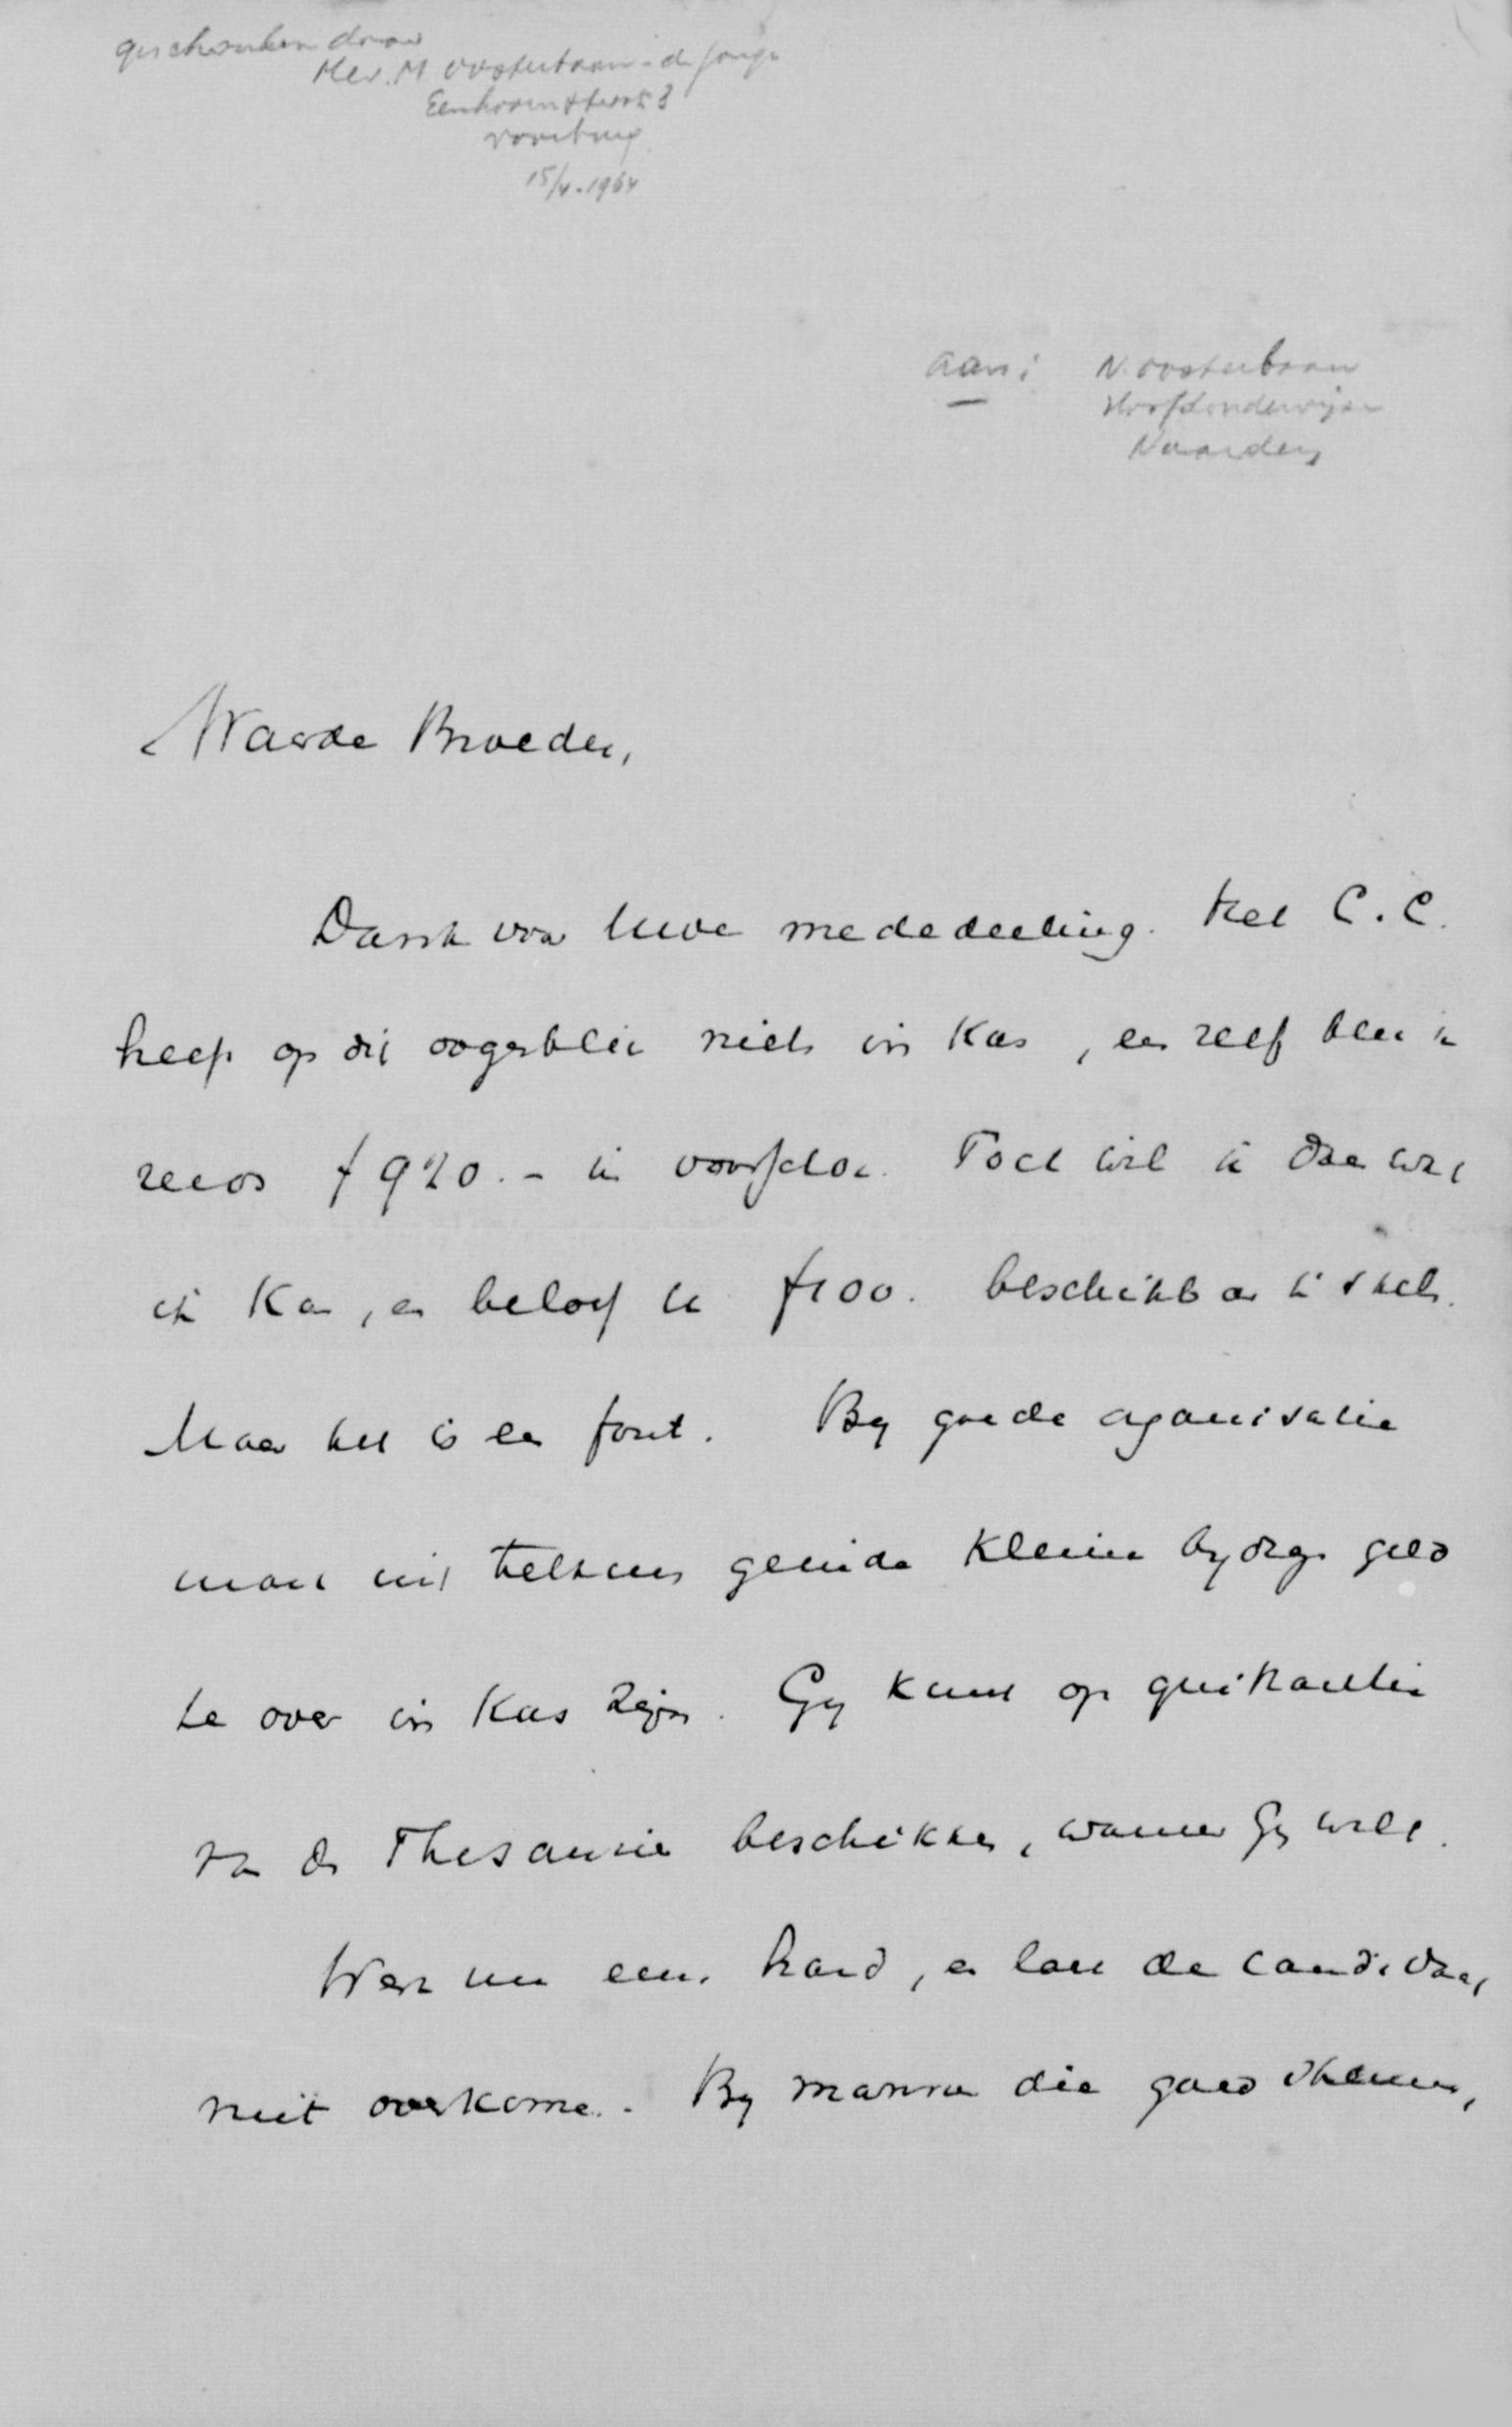 geschonken door
Mev. M Oosterbaan-de Jonge
Eenhoornstraat 3
Voorburg
15/4-1964
aan: N. Oosterbaan
Hoofdonderwijzer
Naarden
Waarde Broeder,
Dank voor Uwe mededeeling. Het C.C.
heeft op dit oogenblik niets in Kas, en zelf ben ik
reeds f 920.- in voorschot. Toch wil ik doen wat
ik Kan, en beloof U f100. beschikbaar te stellen.
Maar het is een fout. By goede organisatie
moet uit telkens geinde kleine bydragen geld
te over in Kas zijn. Gy kunt op quitantie
van de Thesaurie beschikken, wanneer Gy wilt.
Werk nu eens hard, en laat de candidaat
niet overkomen. By mannen die goed stemmen,